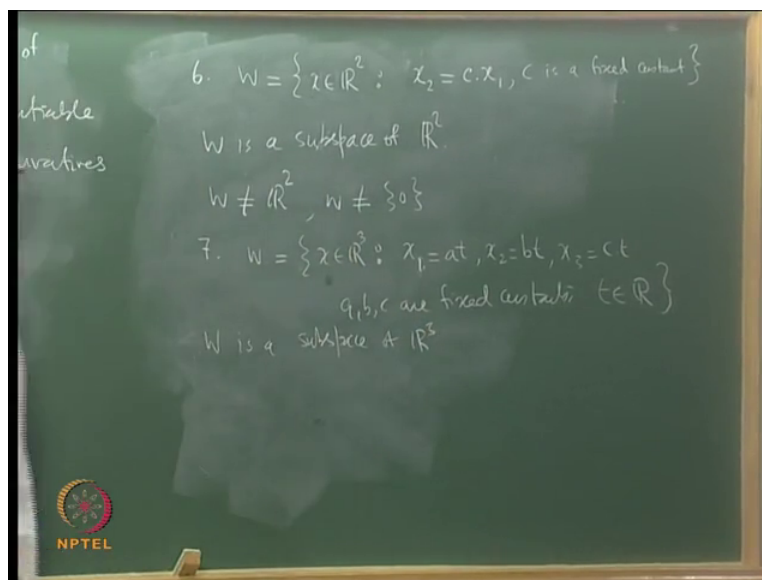 of
6. W = {x∈ℝ² : x₂ = c.x₁, c is a fixed constant}
W is a subspace of ℝ².
W ≠ ℝ², W ≠ {0}
7. W = {x∈ℝ³ : x₁=at, x₂=bt, x₃=ct
a,b,c are fixed constants t∈ℝ}
W is a subspace of ℝ³
NPTEL